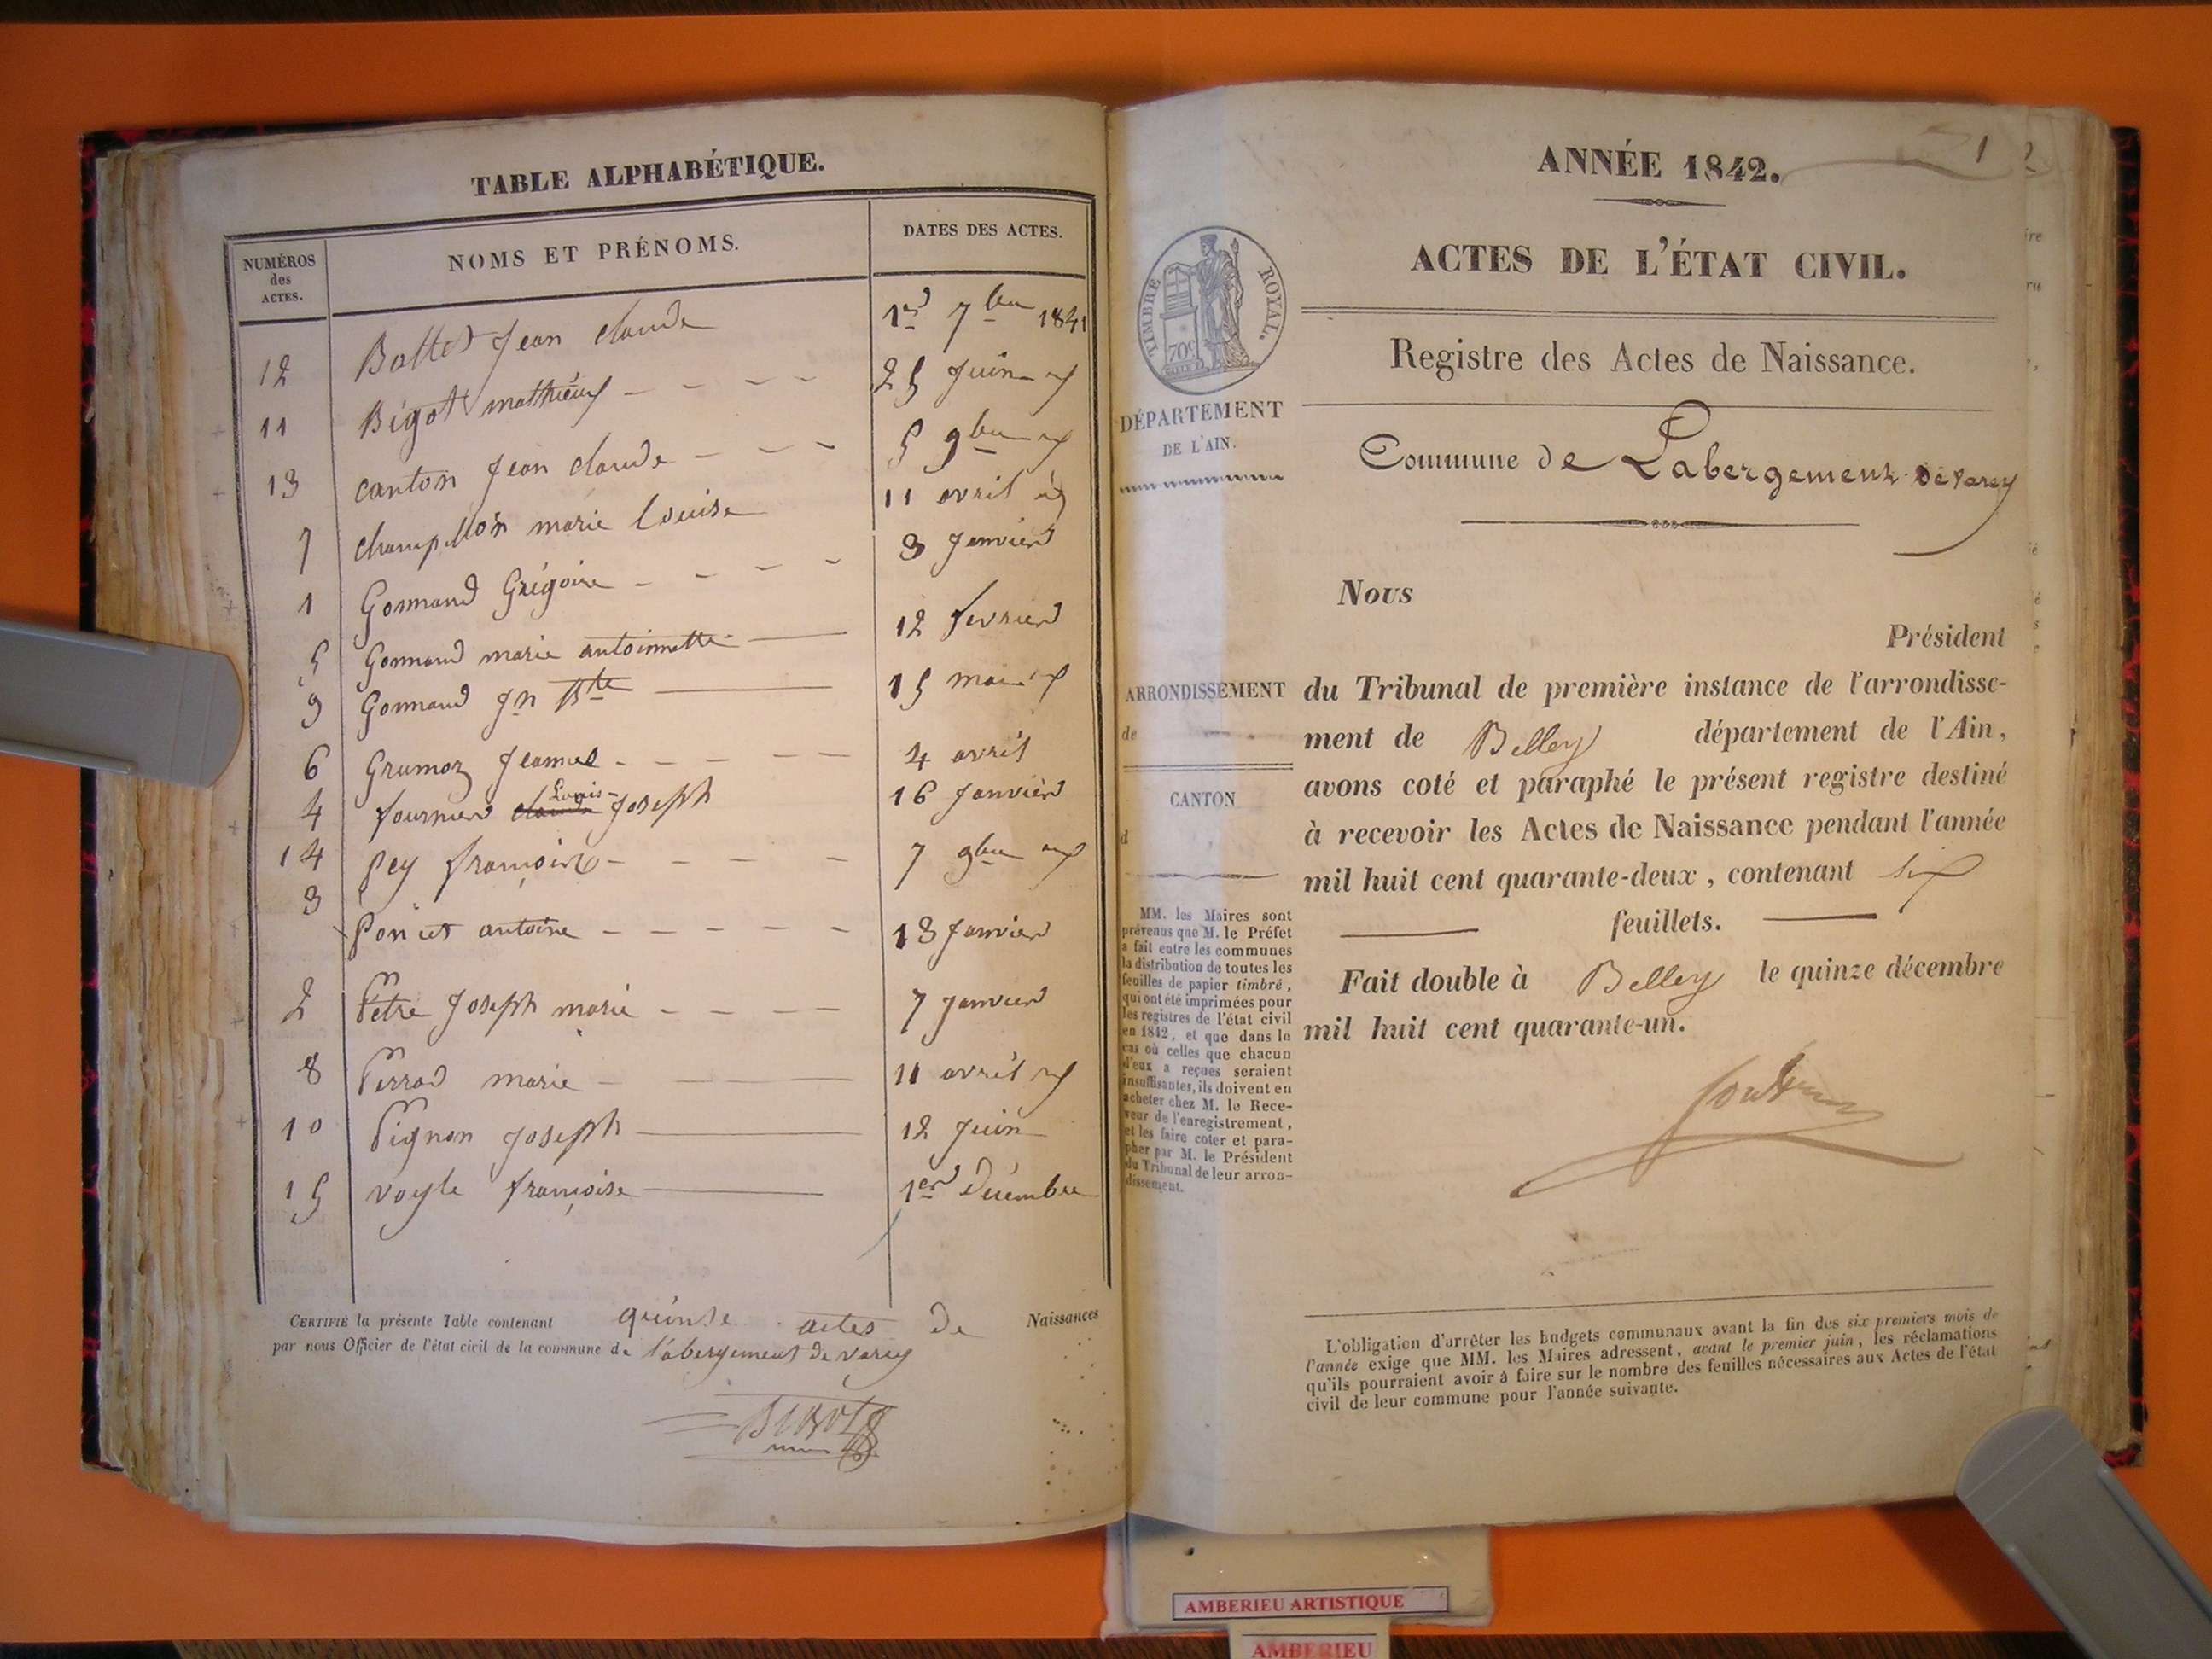 TABLE ALPHABÉTIQUE.
NUMÉROS des ACTES. NOMS ET PRÉNOMS. DATES DES ACTES.
12 Jean claude 1er 7bre 1841
11 Bigot mathieu 25 Juin
13 canton Jean claude 5 9bre
7 champillon marie Louise 11 avril
1 Gormand Grégoire 3 Janvier
5 Gormand marie antoinette 12 fevrier
9 Gormand Jn Bte 15 mai
6 Grumoz 4 avril
4 fournier claude Louis Joseph 16 Janvier
14 pey françoise 7 9bre
3 Poncet antoine 13 Janvier
2 Petre Joseph marie 7 Janvier
8 Perrod marie 11 avril
10 Pignon Joseph 12 Juin
15 voyle françoise 1er Décembre
CERTIFIÉ la présente Table contenant quinse actes de Naissances
par nous Officier de l'état civil de la commune de l'abergement de varey
ANNÉE 1842. 1
ACTES DE L'ÉTAT CIVIL.
Registre des Actes de Naissance.
TIMBRE ROYAL.
70c
DÉPARTEMENT
DE L'AIN.
Commune de Labergement de varey
Nous
Président
ARRONDISSEMENT
de
CANTON
d
du Tribunal de première instance de l'arrondisse-
ment de Belley département de l'Ain,
avons coté et paraphé le présent registre destiné
à recevoir les Actes de Naissance pendant l'année
mil huit cent quarante-deux, contenant six
feuillets.
Fait double à Belley le quinze décembre
mil huit cent quarante-un.
MM. les Maires sont
prévenus que M. le Préfet
a fait entre les communes
la distribution de toutes les
feuilles de papier timbré,
qui ont été imprimées pour
les registres de l'état civil
en 1842, et que dans le
cas où celles que chacun
d'eux a reçues seraient
insuffisantes, ils doivent en
acheter chez M. le Rece-
veur de l'enregistrement,
et les faire coter et para-
pher par M. le Président
du Tribunal de leur arron-
dissement.
L'obligation d'arrêter les budgets communaux avant la fin des six premiers mois de
l'année exige que MM. les Maires adressent, avant le premier juin, les réclamations
qu'ils pourraient avoir à faire sur le nombre des feuilles nécessaires aux Actes de l'état
civil de leur commune pour l'année suivante.
AMBERIEU ARTISTIQUE
AMBERIEU